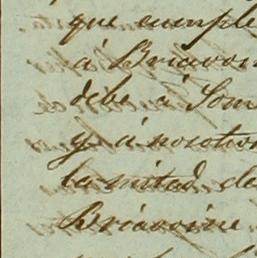 que cumple
á Briavoin
debe á Som
y á nosotro
la mitad de
Briavoine